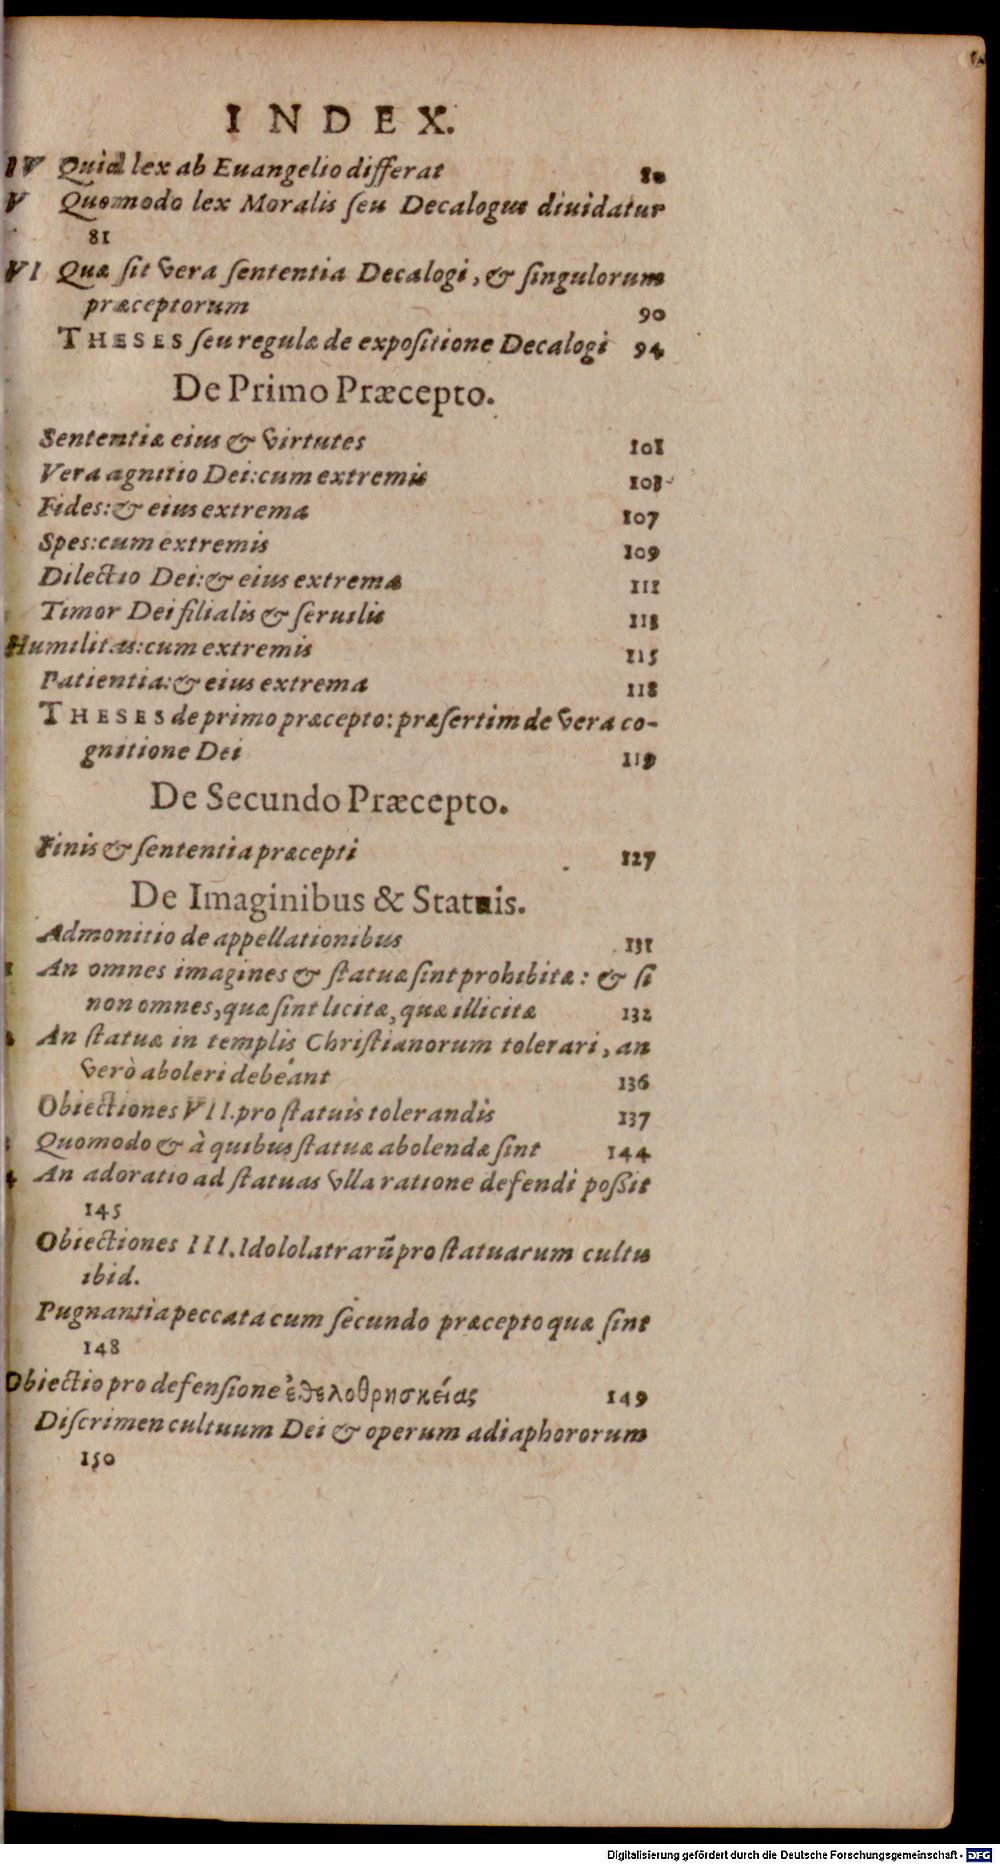 INDEX.
IV Quid lex ab Euangelio differat 80
V Quomodo lex Moralis ſeu Decalogus diuidatur
81
VI Quæ ſit vera ſententia Decalogi, & ſingulorum
præceptorum 90
THESES ſeu regulæ de expoſitione Decalogi 94
De Primo Præcepto.
Sententiæ eius & virtutes 101
Vera agnitio Dei: cum extremis 103
Fides: & eius extrema 107
Spes: cum extremis 109
Dilectio Dei: & eius extrema 111
Timor Dei filialis & ſeruilis 113
Humilitas: cum extremis 115
Patientia: & eius extrema 118
THESES de primo præcepto: præſertim de vera co-
gnitione Dei 119
De Secundo Præcepto.
Finis & ſententia præcepti 127
De Imaginibus & Statuis.
Admonitio de appellationibus 131
An omnes imagines & ſtatuæ ſint prohibitæ: & ſi
non omnes, quæ ſint licitæ, quæ illicitæ 132
An ſtatuæ in templis Chriſtianorum tolerari, an
verò aboleri debeant 136
Obiectiones VII. pro ſtatuis tolerandis 137
Quomodo & à quibus ſtatuæ abolendæ ſint 144
4 An adoratio ad ſtatuas vlla ratione defendi poßit
145
Obiectiones III. Idololatrarũ pro ſtatuarum cultu
ibid.
Pugnantia peccata cum ſecundo præcepto quæ ſint
148
Obiectio pro defenſione ἐθελοθρησκείας 149
Diſcrimen cultuum Dei & operum adiaphororum
150
Digitalisierung gefördert durch die Deutsche Forschungsgemeinschaft - DFG